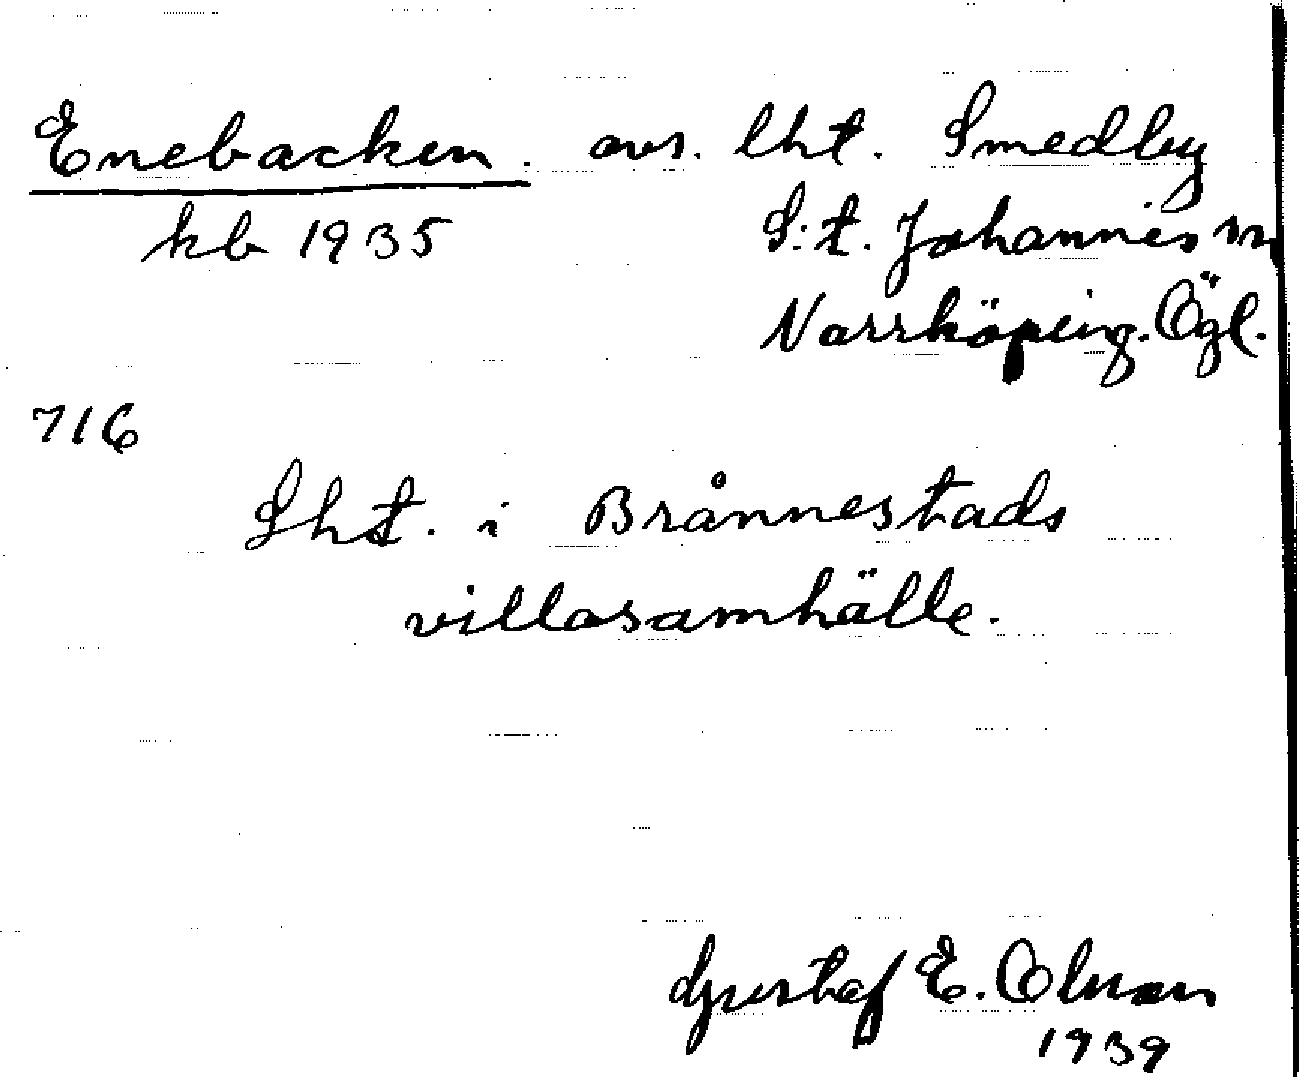 Enebacken. avs. lht. Smedby
kb 1935 S:t. Johannes
Norrköping. Ögl.
716
Lht. i Brånnestads
villasamhälle.
Gustaf E.
1939